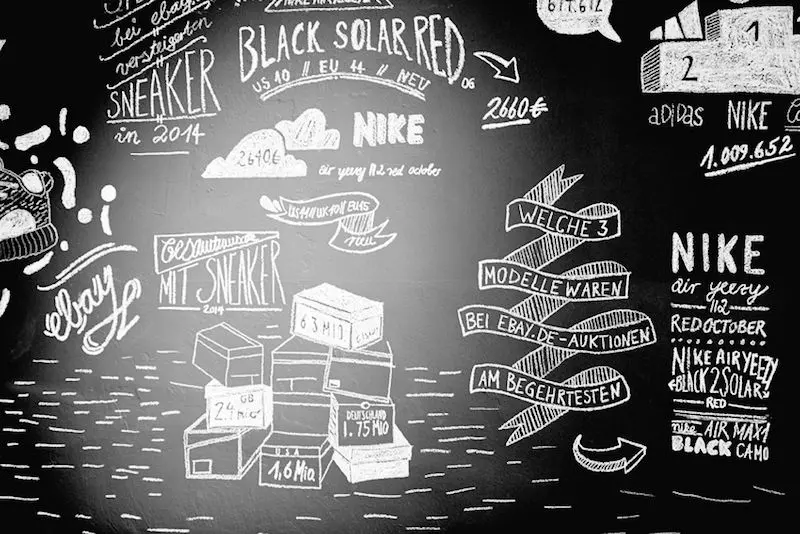 bei ebay
versteigerten
SNEAKER
in 2014
BLACK SOLAR RED
US 10 // EU 44 // NEU
2660 €
2640 €
NIKE
air yeezy 2 red october
neu
MIT SNEAKER
2014
ebay
63 MIO
GB
2.4 MIO
DEUTSCHLAND
1.75 MIO
USA
1,6 Mio
WELCHE 3
MODELLE WAREN
BEI EBAY.DE-AUKTIONEN
AM BEGEHRTESTEN
1
2
adidas NIKE
1.009.652
NIKE
air yeezy
2
RED OCTOBER
NIKE AIR YEEZY
BLACK 2 SOLAR
RED
nike AIR MAX 1
BLACK CAMO